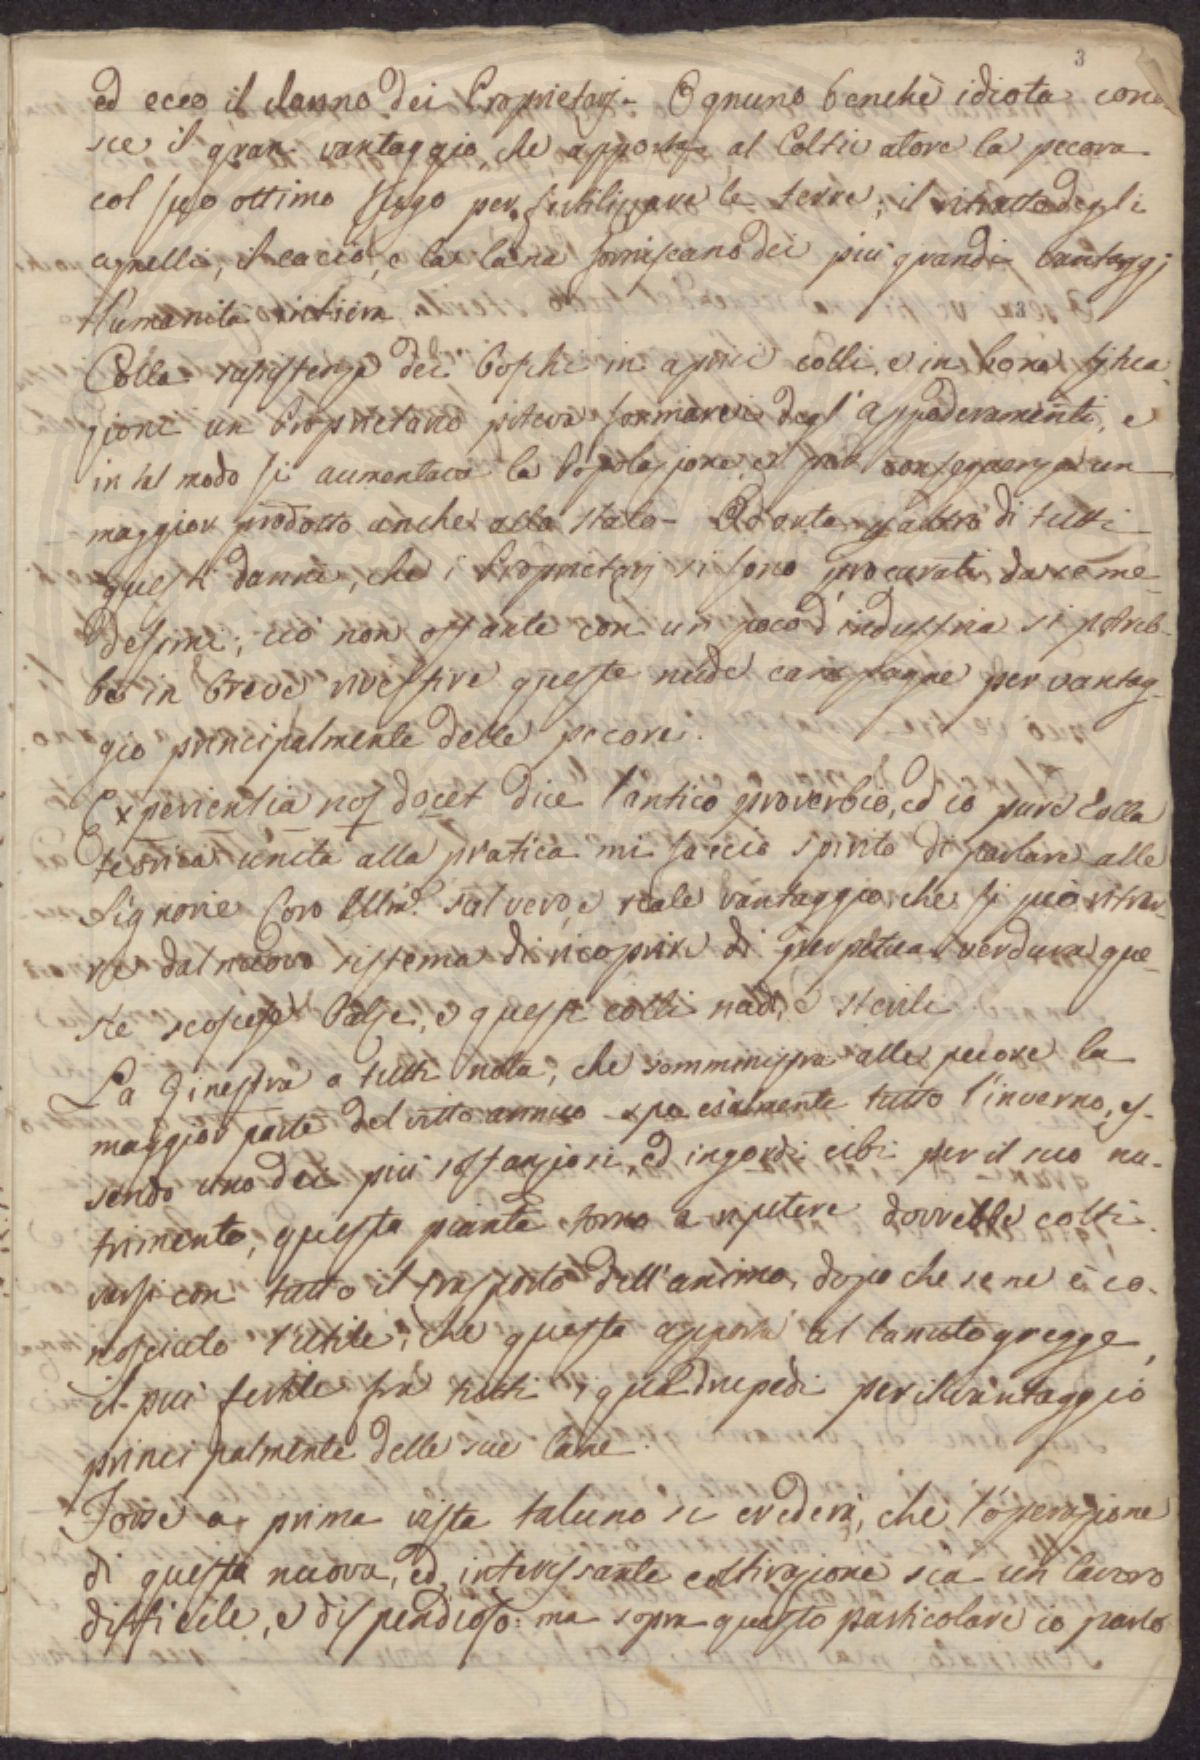 3
ed ecco il danno dei Proprietarj. Ognuno benchè idiota cono-
sce il gran vantaggio, che apporta al Coltivatore la pecora
col suo ottimo sugo per fertilizzare le terre; il ritratto degli
agnelli, il cacio, e la lana forniscano dei più grandi vantaggj
l'umanità intiera
Colla sussistenza dei boschi in aprici colli, e in bona situa-
zione un Proprietario poteva formarci degl'appoderamenti, e
in tal modo si aumentava la Popolazione, e per conseguenza un
maggior prodotto anche allo stato. Ad onta di tutti
questi danni, che i Proprietarj si sono procurati da se me-
desimi; ciò non ostante con un poco d'industria si potreb-
be in breve rivestire queste nude campagne per vantag-
gio principalmente delle pecore.
Experientia nos docet dice l'antico proverbio, ed io pure colla
teorica unita alla pratica mi faccio spirito di parlare alle
Signorie Loro Illme. sul vero, e reale vantaggio che si può ritrar-
re dal nuovo sistema di ricoprire di perpetua verdura que-
ste scoscese balze, e questi colli nudi, e sterili
La Ginestra a tutti nota, che somministra alle pecore la
maggior parte del vitto annuo specialmente tutto l'inverno, es-
sendo uno dei più sostanziosi, ed ingordi cibi per il suo nu-
trimento, questa pianta torno a ripetere dovrebbe colti-
varsi con tutto il trasporto dell'animo, dopo che se ne è co-
nosciuto l'utile, che questa apporta al lanuto gregge,
il più fertile frà tutti i quadrupedi per il vantaggio
principalmente delle sue lane.
Forse a prima vista taluno si crederà, che l'operazione
di questa nuova, ed interessante coltivazione sia un lavoro
difficile, e dispendioso: ma sopra questo particolare io parlo